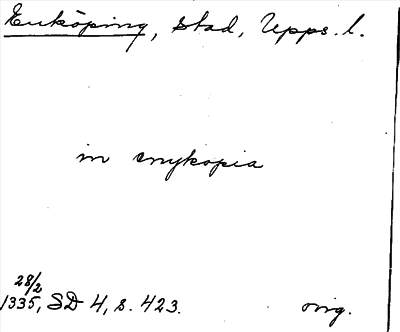 Enköping, stad, Upps. l.
in enykopia
28/2
1335, SD 4, s. 423. orig.